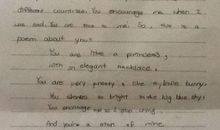 different countries. You encourage me when I
was sad. You are nice to me. So, this is a
poem about you.
You are like a princess,
with an elegant necklace.
You are very pretty & like a little bunny.
You shines so bright in the big blue sky.
You encourage me so I stop crying.
And you're a star of mine.